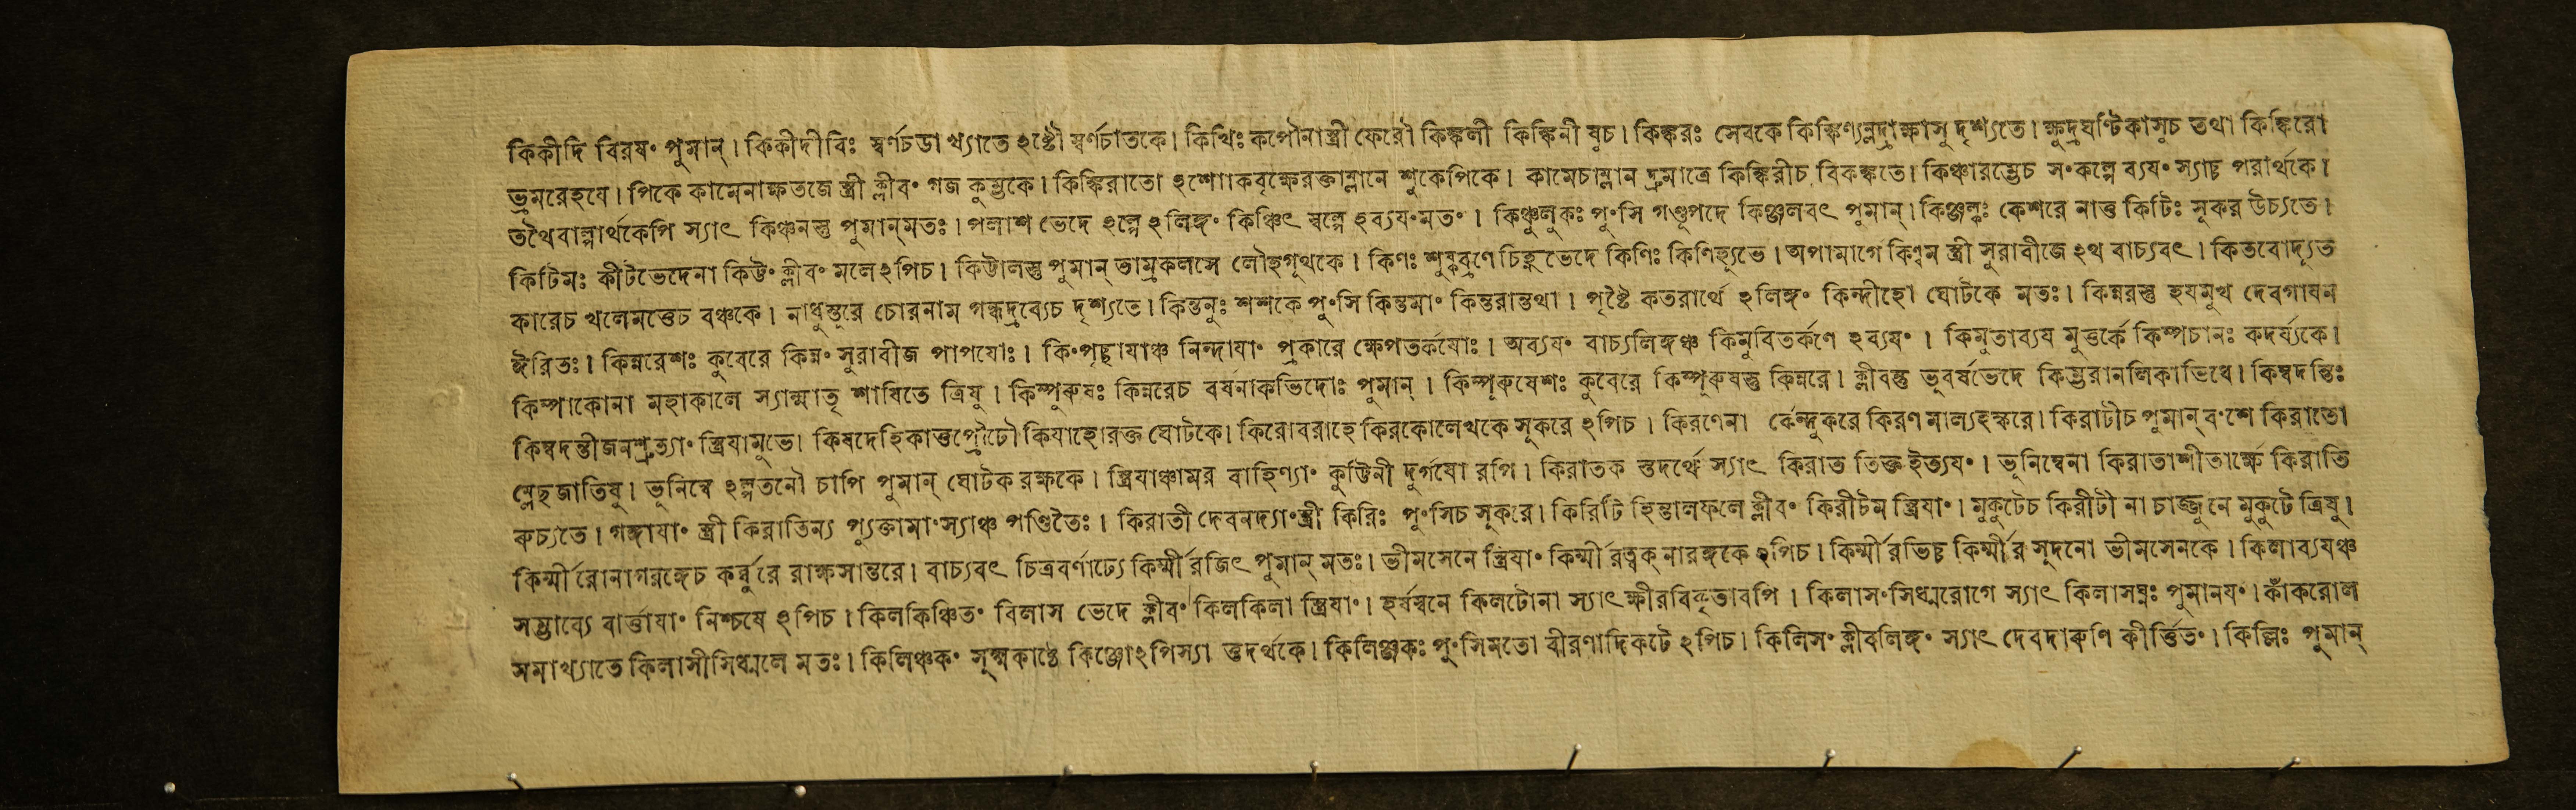 কিকীদি বিরষ° পুমান্। কিকীদীবিঃ স্বর্ণচডা খ্যাতে ঽষ্টৌ স্বর্ণচাতকে। কিখিঃ কপৌনাস্ত্রী ফেরৌ কিঙ্কলী কিঙ্কিনী ষুচ। কিঙ্করঃ সেবকে কিঙ্কিণ্যন্নদ্রাক্ষাসু দৃশ্যতে। ক্ষুদ্রঘণ্টিকাসুচ তথা কিঙ্কিরো
ভ্রমরেহযে। পিকে কামেনাক্ষতজে স্ত্রী ক্লীব° গজ কুম্ভকে। কিঙ্কিরাতো ঽশোাকবৃক্ষেরক্তাম্লানে শুকেপিকে। কামেচাম্লান দ্রুমাত্রে কিঙ্কিরীচ বিকঙ্কতে। কিঞ্চারম্ভেচ স°কল্পে ব্যয° স্যাচ্চ পরার্থকে।
তথৈবাল্পার্থকেপি স্যাৎ কিঞ্চনস্তু পুমান্মতঃ। পলাশ ভেদে ঽল্পে ঽলিঙ্গ° কিঞ্চিৎ স্বল্পে ঽব্যয°মত°। কিঞ্চুলুকঃ পু°সি গণ্ডূপদে কিঞ্জলবৎ পুমান্। কিঞ্জল্কঃ কেশরে নাত্ত কিটিঃ সূকর উচ্যতে।
কিটিমঃ কীটভেদেনা কিট্ট° ক্লীব° মলেঽপিচ। কিট্টালস্তু পুমান্ তাম্রকলসে লৌহগূথকে। কিণঃ শুষ্কব্রণে চিহ্নভেদে কিণিঃ কিণিহ্যুভে। অপামার্গে কিণ্বম স্ত্রী সুরাবীজে ঽথ বাচ্যবৎ। কিতবোদ্যূত
কারেচ খলেমত্তেচ বঞ্চকে। নাধুস্তূরে চোরনাম গন্ধদ্রব্যেচ দৃশ্যতে। কিন্তনুঃ শশকে পু°সি কিন্তমা° কিন্তরান্তথা। পৃষ্টৈ কতরার্থে ঽলিঙ্গ° কিন্দীহো ঘোটকে মতঃ। কিন্নরস্তু হযমুখ দেবগাযন
ঈরিতঃ। কিন্নরেশঃ কুবেরে কিন্ন° সুরাবীজ পাপযোঃ। কি°পৃচ্ছাযাঞ্চ নিন্দাযা° প্রকারে ক্ষেপতর্কযোঃ। অব্যয° বাচ্যলিঙ্গঞ্চ কিমুবিতর্কণে ঽব্যয°। কিমুতাব্যয মুত্তর্কে কিম্পচানঃ কদর্য্যকে।
কিম্পাকোনা মহাকালে স্যান্মাতৃ শাষিতে ত্রিষু। কিম্পুরুষঃ কিন্নরেচ বর্ষনাকভিদোঃ পুমান্। কিম্পূরুষেশঃ কুবেরে কিম্পূরুষস্তু কিন্নরে। ক্লীবন্তু ভূবর্ষভেদে কিম্ভরানলিকাভিধে। কিম্বদন্তিঃ
কিম্বদন্তীজনশ্রুত্যা° স্ত্রিযামুভে। কিষদেহিকাত্তপ্রৌঢৌ কিযাহোরক্ত ঘোটকে। কিরোবরাহে কিরকোলেখকে সূকরে ঽপিচ। কিরণেনা র্কেন্দুকরে কিরণ মাল্যহস্করে। কিরাটীচ পুমান্ ব°শে কিরাতো
ম্লেছজাতিষু। ভূনিম্বে ঽল্পতনৌ চাপি পুমান্ ঘোটক রক্ষকে। স্ত্রিযাঞ্চামর বাহিণ্যা° কুট্টিনী দুর্গযো রপি। কিরাতক স্তদর্থে স্যাৎ কিরাত তিক্তইত্যয°। ভূনিম্বেনা কিরাতাশীতার্ক্ষে কিরাতি
রুচ্যতে। গঙ্গাযা° স্ত্রী কিরাতিন্য প্যুক্তামা°স্যাঞ্চ পণ্ডিতৈঃ। কিরাতী দেবনদ্যা°স্ত্রী কিরিঃ পু°সিচ সূকরে। কিরিটি হিন্তালফলে ক্লীব° কিরীটম স্ত্রিযা°। মুকুটেচ কিরীটী না চার্জ্জুনে মুকুটে ত্রিষু।
কির্ম্মীরোনাগরঙ্গেচ কর্বুরে রাক্ষসান্তরে। বাচ্যবৎ চিত্রবর্ণাঢ্যে কির্ম্মীরজিৎ পুমান্ মতঃ। ভীমসেনে স্ত্রিযা° কির্ম্মীরত্বক্ নারঙ্গকে ঽপিচ। কির্ম্মীরভিচ্চ কির্ম্মীর সূদনো ভীমসেনকে। কিলাব্যযঞ্চ
সম্ভাব্যে বার্ত্তাযা° নিশ্চযে ঽপিচ। কিলকিঞ্চিত° বিলাস ভেদে ক্লীব° কিলকিলা স্ত্রিযা°। হর্ষস্বনে কিলটোনা স্যাৎ ক্ষীরবিকৃতাবপি। কিলাস°সিধ্মরোগে স্যাৎ কিলাসঘ্নঃ পুমানয°। কাঁকরোল
সমাখ্যাতে কিলাসীসিধ্মলে মতঃ। কিলিঞ্চক° সূক্ষ্মকাষ্ঠে কিঞ্জোঽপিস্যা ত্তদর্থকে। কিলিঞ্জকঃ পু°সিমতো বীরণাদিকটে ঽপিচ। কিলিস° ক্লীবলিঙ্গ° স্যাৎ দেবদারুণি কীর্ত্তিত°। কিল্লিঃ পুমান্